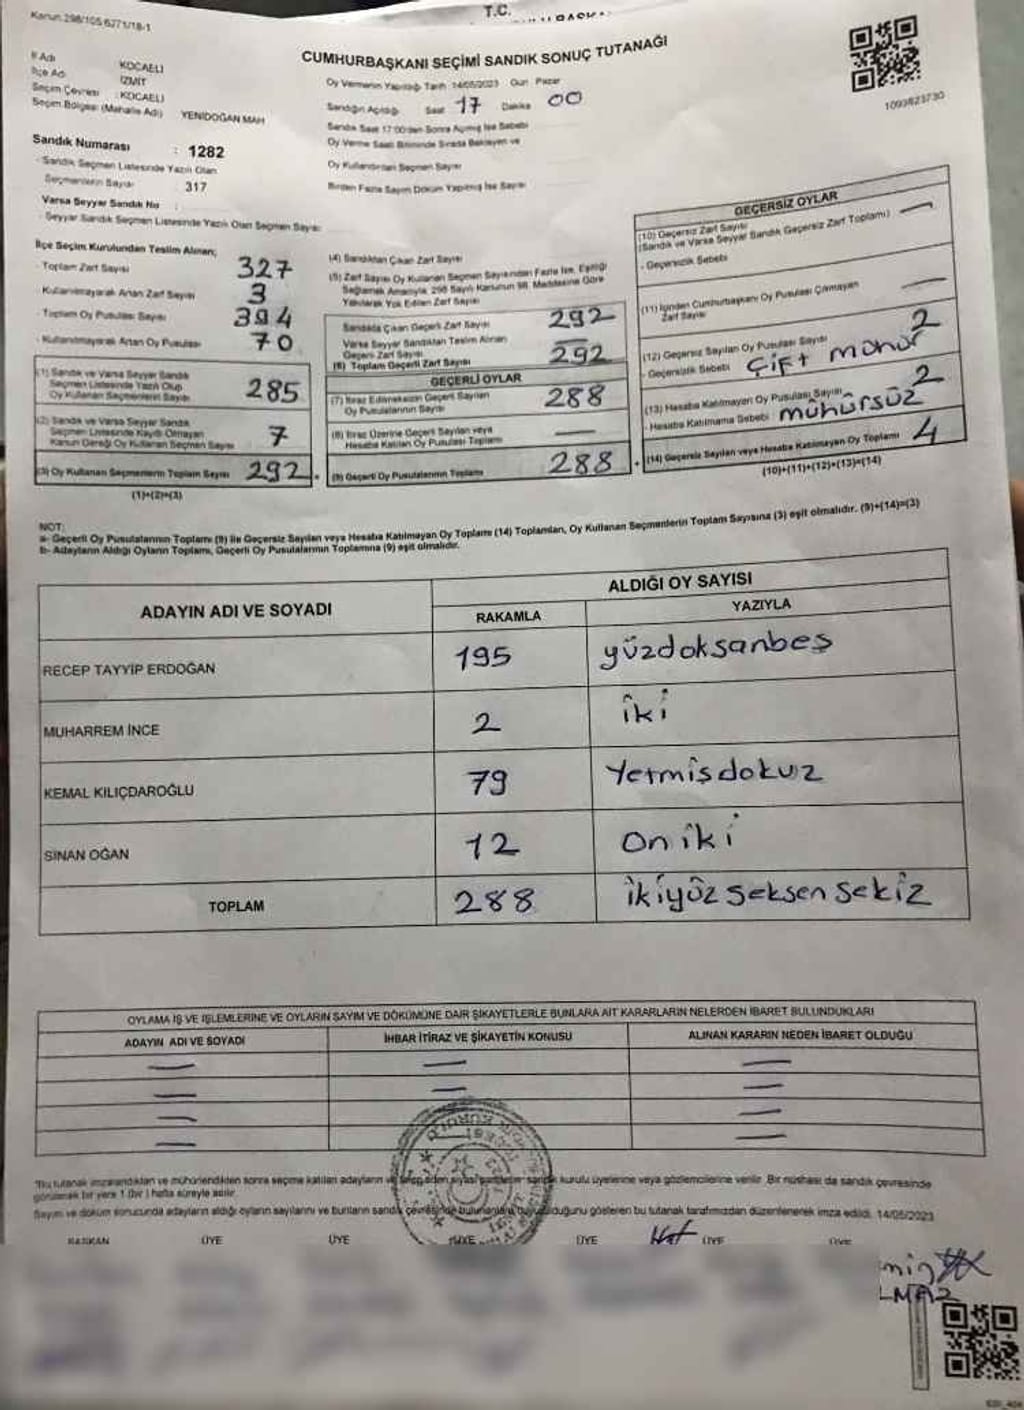 Kanun 298/105 6271/18-1
T.C.
CUMHURBAŞKANI SEÇİMİ SANDIK SONUÇ TUTANAĞI
İl Adı KOCAELİ
İlçe Adı İZMİT
Seçim Çevresi : KOCAELİ
Seçim Bölgesi (Mahalle Adı) YENİDOĞAN MAH
Sandık Numarası : 1282
- Sandık Seçmen Listesinde Yazılı Olan
Seçmenlerin Sayısı 317
Varsa Seyyar Sandık No :
- Seyyar Sandık Seçmen Listesinde Yazılı Olan Seçmen Sayısı:
Oy Vermenin Yapıldığı Tarih 14/05/2023 Gün Pazar
Sandığın Açıldığı Saat 17 Dakika 00
Sandık Saat 17:00'den Sonra Açılmış İse Sebebi
Oy Verme Saati Bitiminde Sırada Bekleyen ve
Oy Kullandırılan Seçmen Sayısı
Birden Fazla Sayım Döküm Yapılmış İse Sayısı
1093823730
İlçe Seçim Kurulundan Teslim Alınan;
- Toplam Zarf Sayısı 327
- Kullanılmayarak Artan Zarf Sayısı 3
- Toplam Oy Pusulası Sayısı 394
- Kullanılmayarak Artan Oy Pusulası 70
(1) Sandık ve Varsa Seyyar Sandık
Seçmen Listesinde Yazılı Olup
Oy Kullanan Seçmenlerin Sayısı 285
(2) Sandık ve Varsa Seyyar Sandık
Seçmen Listesinde Kayıtlı Olmayan
Kanun Gereği Oy Kullanan Seçmen Sayısı 7
(3) Oy Kullanan Seçmenlerin Toplam Sayısı 292
(1)+(2)=(3)
(4) Sandıktan Çıkan Zarf Sayısı
(5) Zarf Sayısı Oy Kullanan Seçmen Sayısından Fazla İse, Eşitliği
Sağlamak Amacıyla, 298 Sayılı Kanunun 98. Maddesine Göre
Yakılarak Yok Edilen Zarf Sayısı
Sandıkta Çıkan Geçerli Zarf Sayısı 292
Varsa Seyyar Sandıktan Teslim Alınan
Geçerli Zarf Sayısı
(6) Toplam Geçerli Zarf Sayısı 292
GEÇERLİ OYLAR
(7) İtiraz Edilmeksizin Geçerli Sayılan
Oy Pusulalarının Sayısı 288
(8) İtiraz Üzerine Geçerli Sayılan veya
Hesaba Katılan Oy Pusulası Toplamı
(9) Geçerli Oy Pusulalarının Toplamı 288
GEÇERSİZ OYLAR
(10) Geçersiz Zarf Sayısı
(Sandık ve Varsa Seyyar Sandık Geçersiz Zarf Toplamı)
- Geçersizlik Sebebi
(11) İçinden Cumhurbaşkanı Oy Pusulası Çıkmayan
Zarf Sayısı
(12) Geçersiz Sayılan Oy Pusulası Sayısı 2
- Geçersizlik Sebebi Çift mühür
(13) Hesaba Katılmayan Oy Pusulası Sayısı 2
- Hesaba Katılmama Sebebi mühürsüz
(14) Geçersiz Sayılan veya Hesaba Katılmayan Oy Toplamı 4
(10)+(11)+(12)+(13)=(14)
NOT:
a- Geçerli Oy Pusulalarının Toplamı (9) ile Geçersiz Sayılan veya Hesaba Katılmayan Oy Toplamı (14) Toplamları, Oy Kullanan Seçmenlerin Toplam Sayısına (3) eşit olmalıdır. (9)+(14)=(3)
b- Adayların Aldığı Oyların Toplamı, Geçerli Oy Pusulalarının Toplamına (9) eşit olmalıdır.
ADAYIN ADI VE SOYADI ALDIĞI OY SAYISI
RAKAMLA YAZIYLA
RECEP TAYYİP ERDOĞAN 195 yüzdoksanbeş
MUHARREM İNCE 2 iki
KEMAL KILIÇDAROĞLU 79 Yetmişdokuz
SİNAN OĞAN 12 Oniki
TOPLAM 288 ikiyüz seksen sekiz
OYLAMA İŞ VE İŞLEMLERİNE VE OYLARIN SAYIM VE DÖKÜMÜNE DAİR ŞİKAYETLERLE BUNLARA AİT KARARLARIN NELERDEN İBARET BULUNDUKLARI
ADAYIN ADI VE SOYADI İHBAR İTİRAZ VE ŞİKAYETİN KONUSU ALINAN KARARIN NEDEN İBARET OLDUĞU
*Bu tutanak imzalandıktan ve mühürlendikten sonra seçime katılan adayların ve sandık kurulu üyelerine veya gözlemcilerine verilir. Bir nüshası da sandık çevresinde
görülecek bir yere 1 (bir) hafta süreyle asılır.
Sayım ve döküm sonucunda adayların aldığı oyların sayılarını ve bunların sandık çevresinde bulunanlara duyurulduğunu gösteren bu tutanak tarafımızdan düzenlenerek imza edildi. 14/05/2023
BAŞKAN ÜYE ÜYE ÜYE ÜYE ÜYE ÜYE